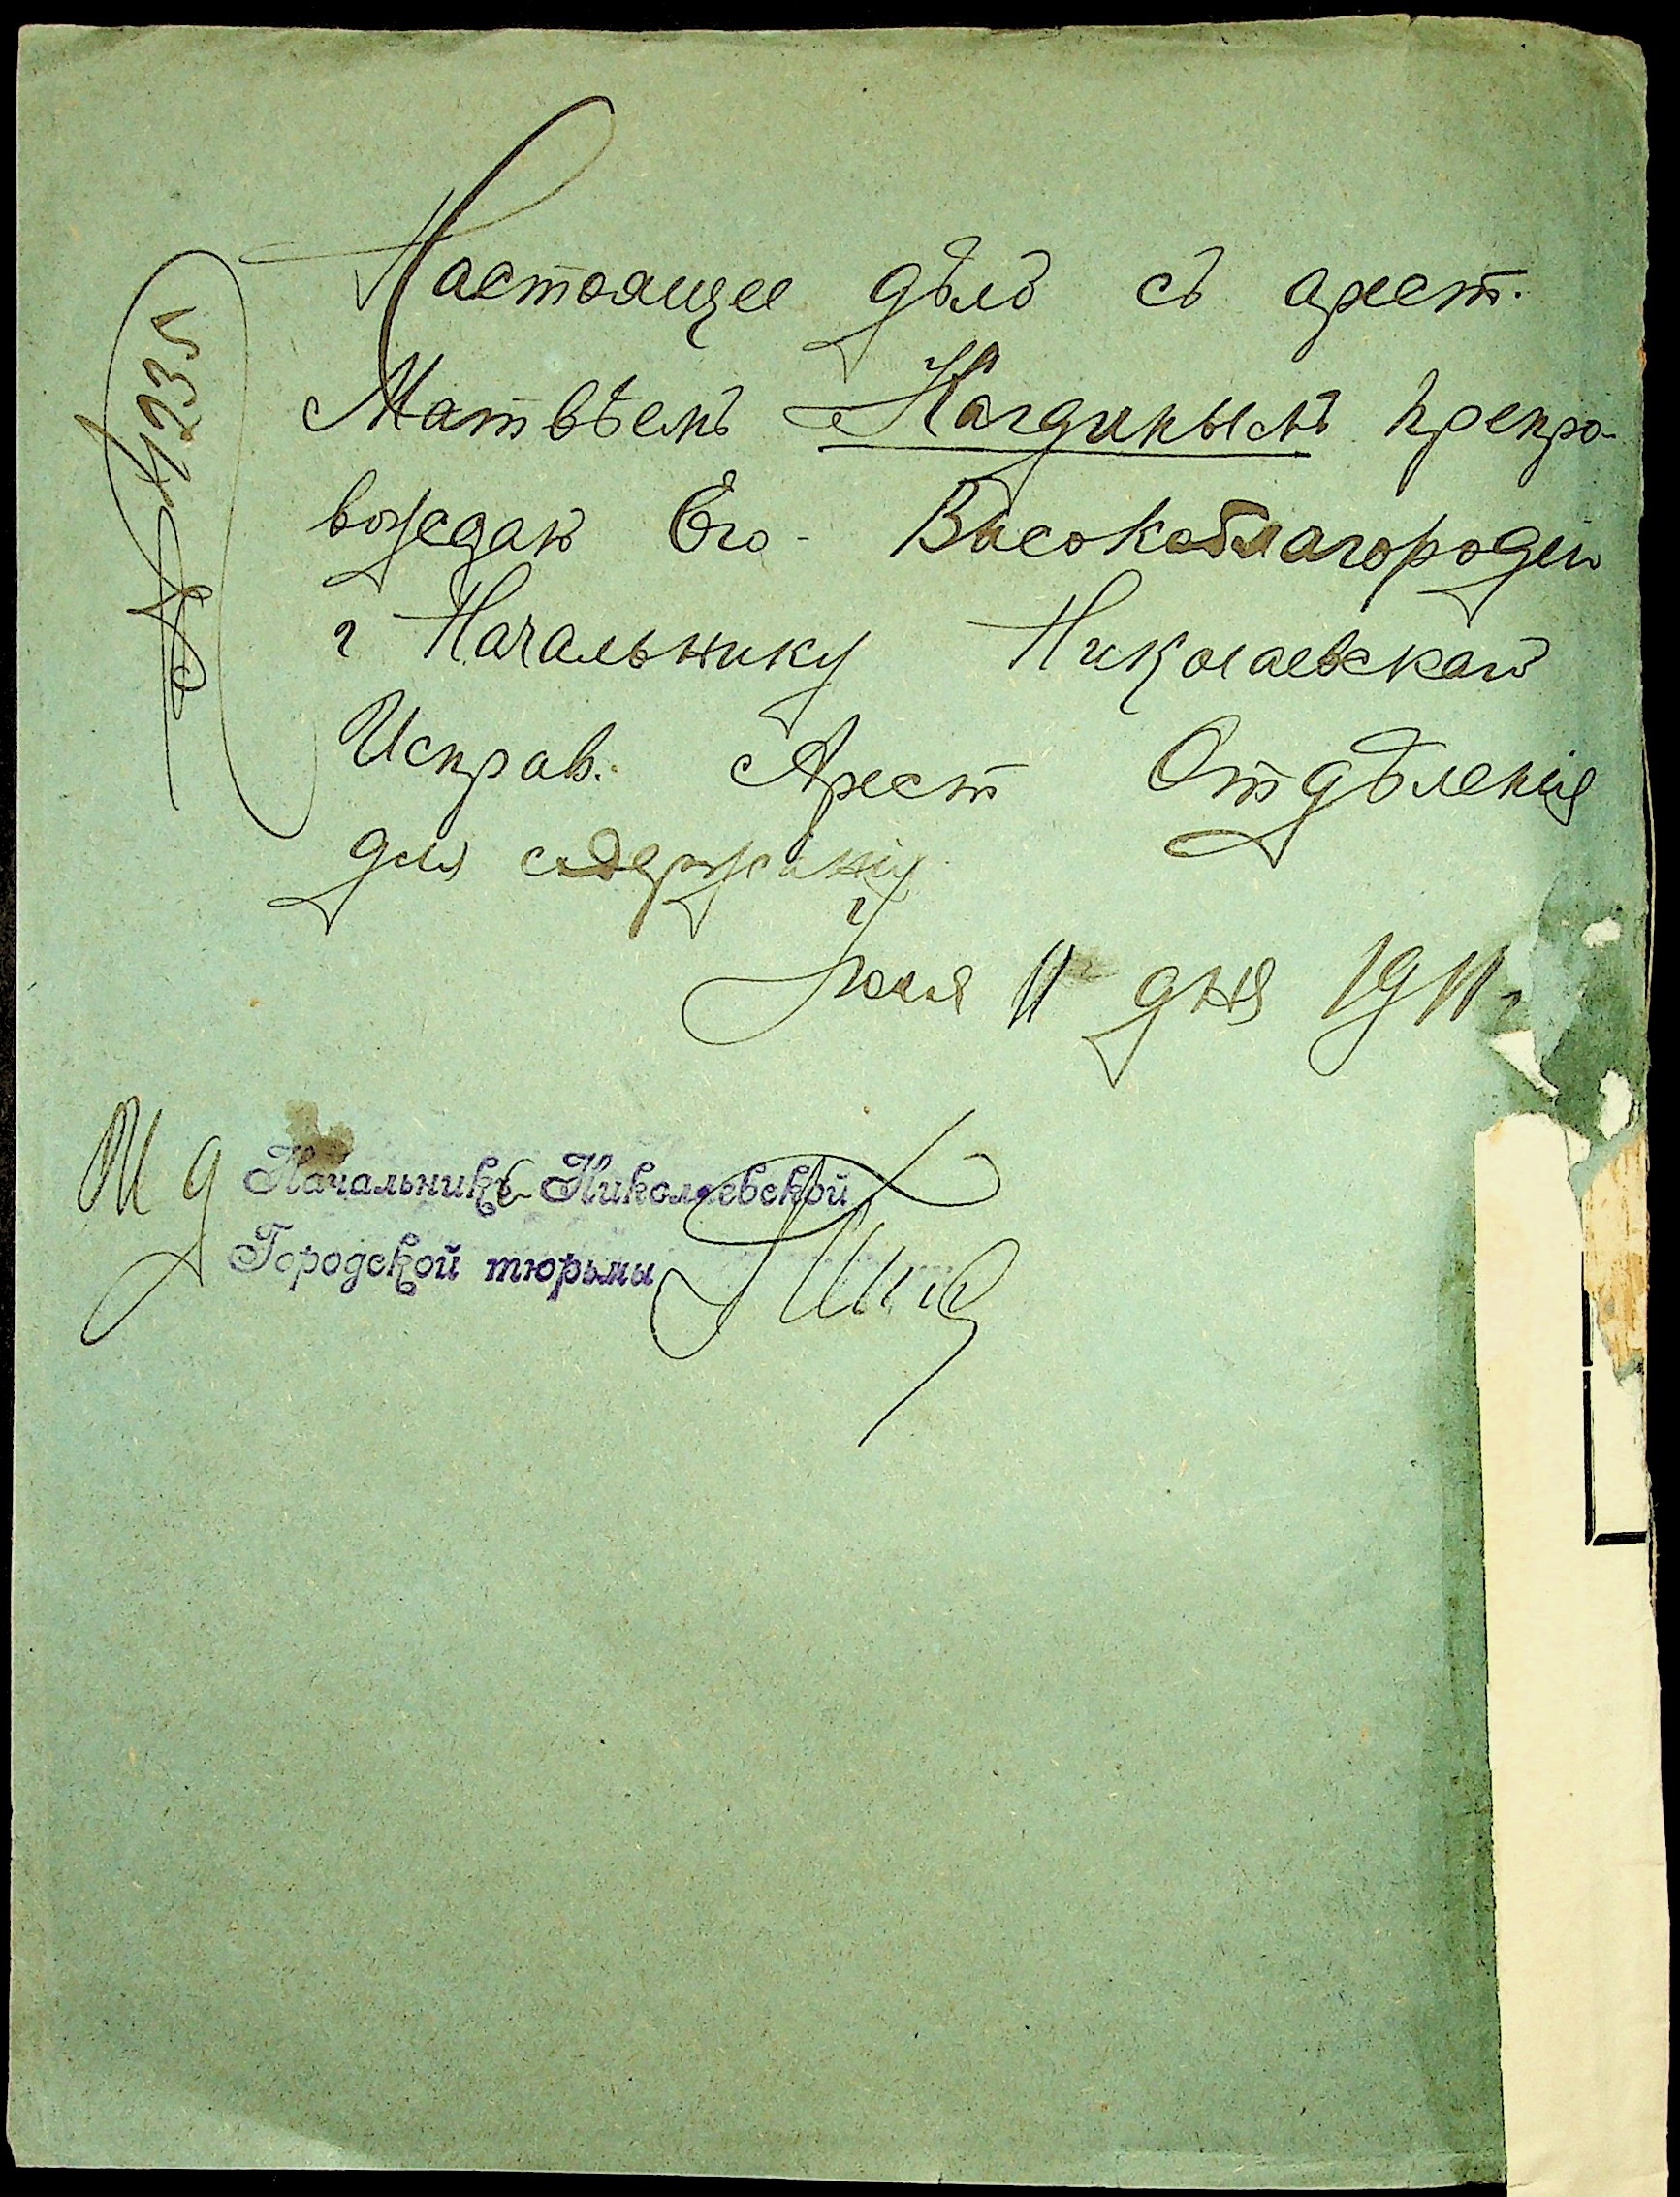 Настоящее дѣло съ арест.
Матвѣемъ Кагдинымъ препро-
вождаю Его Высокоблагородію
г Начальнику Николаевской
Исправ. Арест Отдѣленія
для содержанія
Іюля 11 дня 1911 г
№ 4231
И д Начальникъ Николаевской
Городской тюрьмы